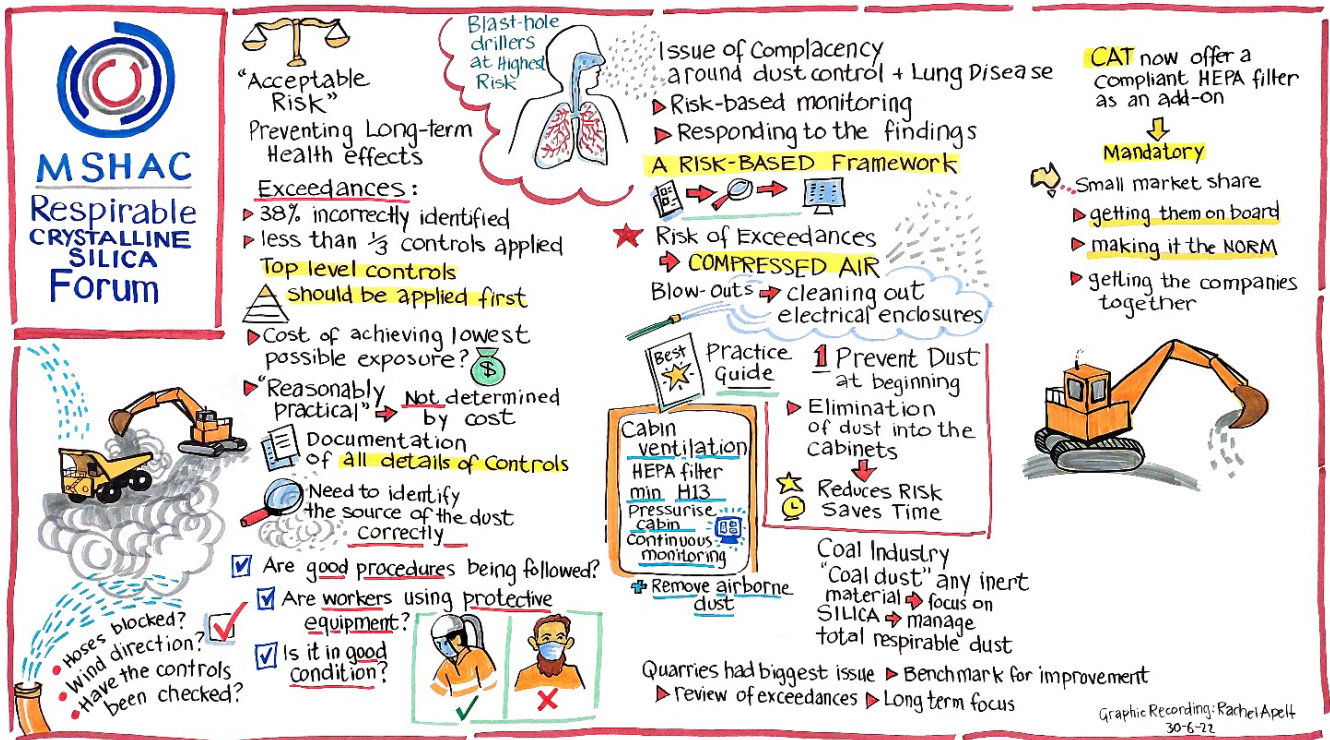 MSHAC
Respirable
CRYSTALLINE
SILICA
Forum
"Acceptable
Risk"
Preventing Long-term
Health effects
Exceedances:
38% incorrectly identified
less than 1/3 controls applied
Top level controls
should be applied first
Cost of achieving lowest
possible exposure?
$
"Reasonably
practical" Not determined
by cost
Documentation
of all details of controls
Need to identify
the source of the dust
correctly
Are good procedures being followed?
Are workers using protective
equipment?
Is it in good
condition?
Hoses blocked?
Wind direction?
Have the controls
been checked?
Blast-hole
drillers
at Highest
Risk
Issue of Complacency
around dust control + Lung Disease
Risk-based monitoring
Responding to the findings
A RISK-BASED Framework
Risk of Exceedances
COMPRESSED AIR
Blow-outs cleaning out
electrical enclosures
Best
Practice
Guide
Cabin
ventilation
HEPA filter
min H13
Pressurise
cabin
Continuous
monitoring
+ Remove airborne
dust
1 Prevent Dust
at beginning
Elimination
of dust into the
cabinets
Reduces RISK
Saves Time
Coal Industry
"Coal dust" any inert
material focus on
SILICA manage
total respirable dust
Quarries had biggest issue Benchmark for improvement
review of exceedances Long term focus
CAT now offer a
compliant HEPA filter
as an add-on
Mandatory
Small market share
getting them on board
making it the NORM
getting the companies
together
Graphic Recording: Rachel Apelt
30-6-22